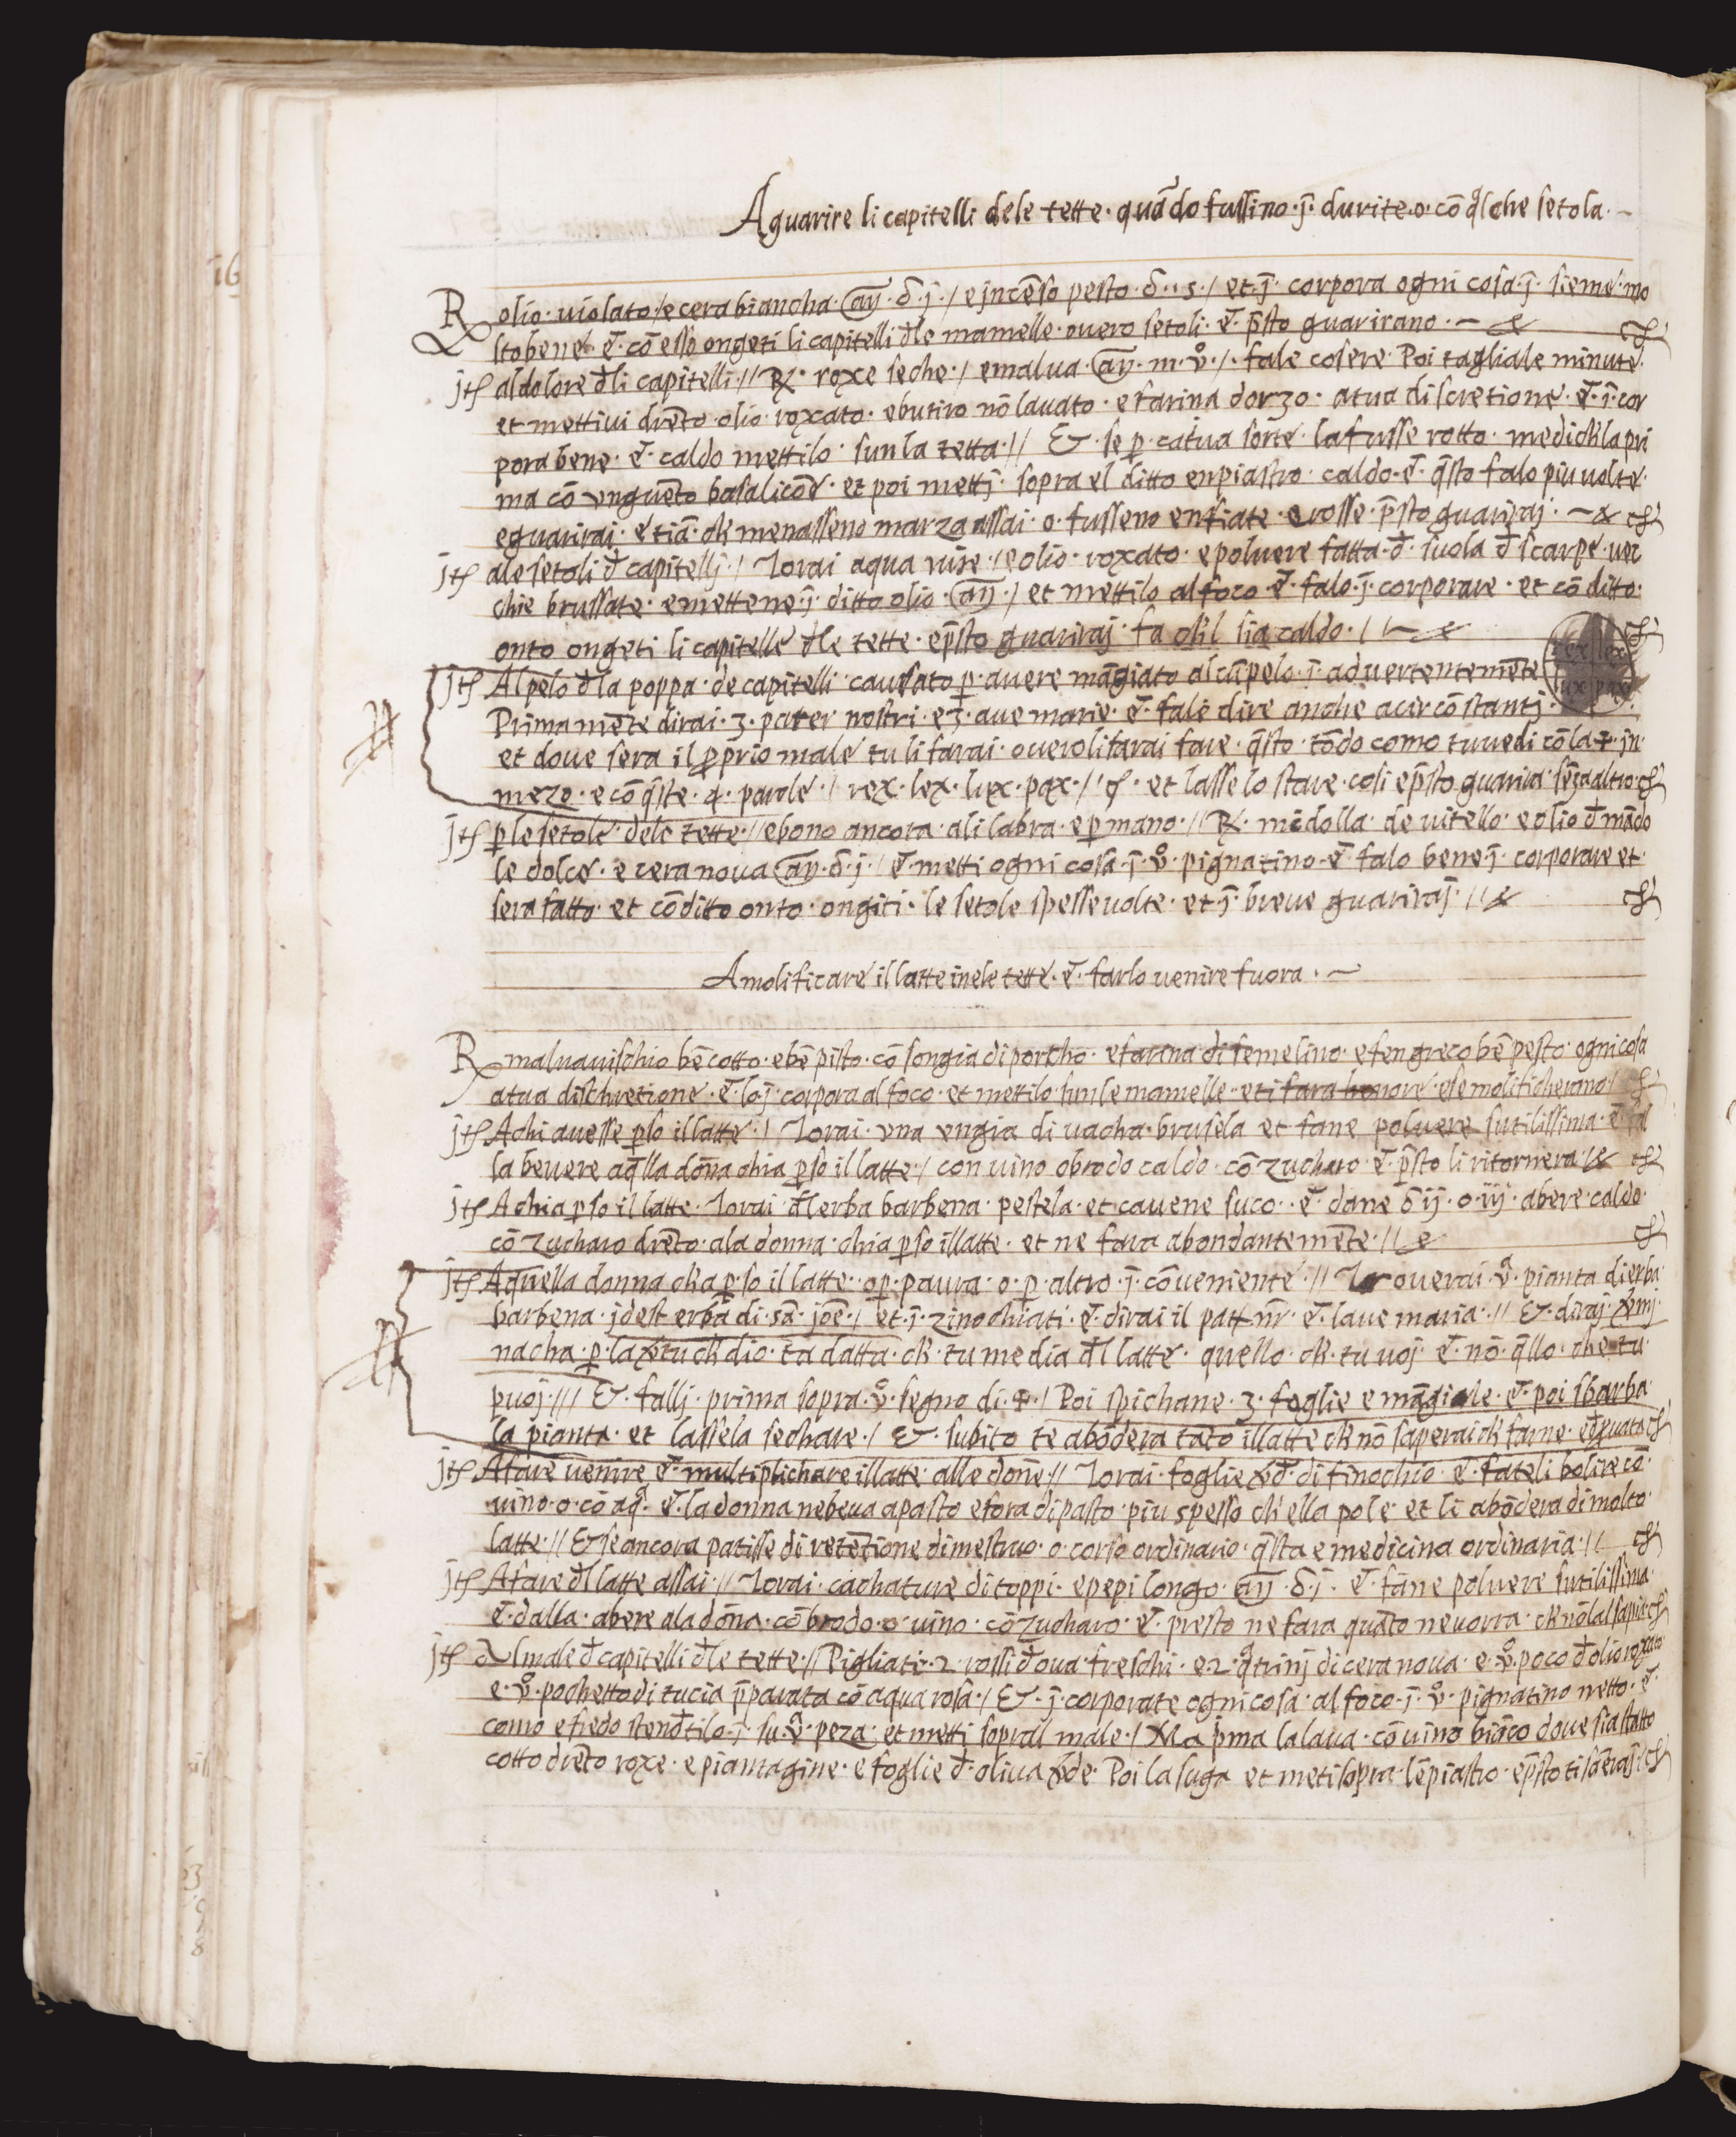 A guarire li capitelli dele tette · quādo fussino · ī · durite · o · cō q̄lche setola ·
R olio · uiolato / e cera biancha · añ · δ · j · / e jncēso pesto · δ · s · / et · j̄ · corpora ogni cosa · j̄ · sieme · mo
sto bene · et · cō esso ongeti li capitelli đle mamelle · ouero setoli · et · p̄sto guarirano ·
jtē al dolore đli capitelli // R · roxe seche · / e malua · añ · m · v° · / · fale cosere · Poi tagliale minute ·
et mettiui drēto olio · roxato · e butiro nō lauato · e farina dorzo · a tua discretione · et · ī · cor
pora bene · et · caldo mettilo · sun la tetta · // & · se p · catiua sorte · la fusse rotto · medichila pri
ma cō vnguēto basalicōe · et poi mettj · sopra el ditto enpiastro · caldo · et · q̄sto falo piu uolte ·
e guariraj · etiā · ch menasseno marza assai · o · fusseno enfiate · e rosse · p̄sto guariraj ·
jtē ale setoli đ capitellj · / Torai aqua uise · / e olio · roxato · e poluere fatta · đ · suola đ scarpe · uec
chie brussate · e mettene · j̄ · ditto olio · añ · / et mettilo al foco et · falo · j̄ · corporare · et cō ditto ·
onto ongeti li capitelle đle tette · e p̄sto guariraj · fa chl sia caldo · /
jtē Al pelo đla poppa · de capitelli causato p · auere māgiato alcū pelo · ī · aduertentemēte
rex lex
lux pax
Prima mēte dirai · 3 · pater nostri · e 3 · aue marie · et · fale dire anche a circōstantj ·
et doue sera il pprio male tu li farai · ouero li farai fare · q̄sto · tōdo como tu uedi cō la ✝ · jn ·
mezo · e cō q̄ste · 4 · parole · / rex · lex · lux · pax · / et lasselo stare · cosi e p̄sto guarira sēza altro
jtē p le setole dele tette · // e bono ancora · ali labra · e p mano · // R · midolla · de uitello · e olio đ mādo
le dolce · e cera noua añ · δ · j · / et · metti ogni cosa · j̄ · v° · pignatino · et · falo bene · j̄ · corporare et ·
sera fatto · et cō ditto onto · ongiti · le setole spesse uolte · et · j̄ · breue guariraj · //
A molificare il latte inele tette · et · farlo uenire fuora ·
R maluauischio bē cotto · e bē pisto · cō songia di porcho · e farina di semelino · e fengreco bē pesto · ogni cosa
a tua dischretione · et · lo · j̄ · corpora al foco · et mettilo sun le mamelle · e ti fara honore e se molificherano /
jtē A chi auesse pso il latte · / Torai · vna vngia di uacha · brusela et fane poluere sutilissima · et fal
la beuere aq̄lla dōna chia pso il latte · / con uino o brodo caldo · cō zucharo · et · p̄sto li ritornera
jtē A chia pso il latte · Torai đl erba barbena · pestela · et cauene suco · et · dane δ ij · o · iij · a bere caldo ·
cō zucharo drēto · ala donna · chia pso il latte · et ne fara abondantemēte · //
jtē A quella donna cha p · so il latte · o p · paura · o · p · altro · j̄ · cōueniente · // Trouerai · vª · pianta di erba
barbena · jdest erba di · sā · joē · / et · j̄ · zinochiati · et · dirai il patr nr̄ · et · laue maria · // & · diraj
nacha · p · la ụtu ch dio · ta datta · ch · tu me dia đl latte · quello · ch · tu uoj · et · nō · q̄llo · che tu ·
puoj · /// & · fallj · prima sopra · v° · segno di · ✝ · / Poi spichane · 3 · foglie e māgiale · et · poi sbarba
la pianta · et lassela sechare · / & · subito te abōdera tāto il latte ch nō saperai ch farne ·
jtē A fare uenire et · multiplichare il latte alle done · // Torai · foglie ụđ · di finochio · et · fateli bolire cō ·
uino · o · cō aqª · et · la donna ne beua a pasto e fora di pasto · piu spesso ch ella pole · et li abōdera di molto ·
latte · // & se ancora patisse di retētione di mestruo · o · corso ordinario · q̄sta e medicina ordinaria · //
jtē A fare đl latte assai · // Torai · cachature di toppi · e pepi longo · añ · δ · j · et · fane poluere sutilissima
et · dalla · a bere ala dōna · cō brodo · o · uino · cō zucharo · et · presto ne fara quāto ne uorra ·
jtē Al male đ capitelli đle tette · // Pigliate · 2 · rossi đ oua freschi · e · 2 · q̄trinj di cera noua · e · v° · poco đ olio roxato
e · v° · pochetto di tucia p̄parata cō aqua rosa · / & · j̄ · corporate ogni cosa · al foco · j̄ · v° · pignatino netto · et ·
como e fredo stendtilo · j̄ · su · vª · peza · et metti sopral male · / Ma p̄ma la laua · cō uino biāco doue sia statto
cotto drēto roxe · e piantagine · e foglie đ · oliua ụde · Poi la suga et meti sopra · lēpiastro · e p̄sto ti